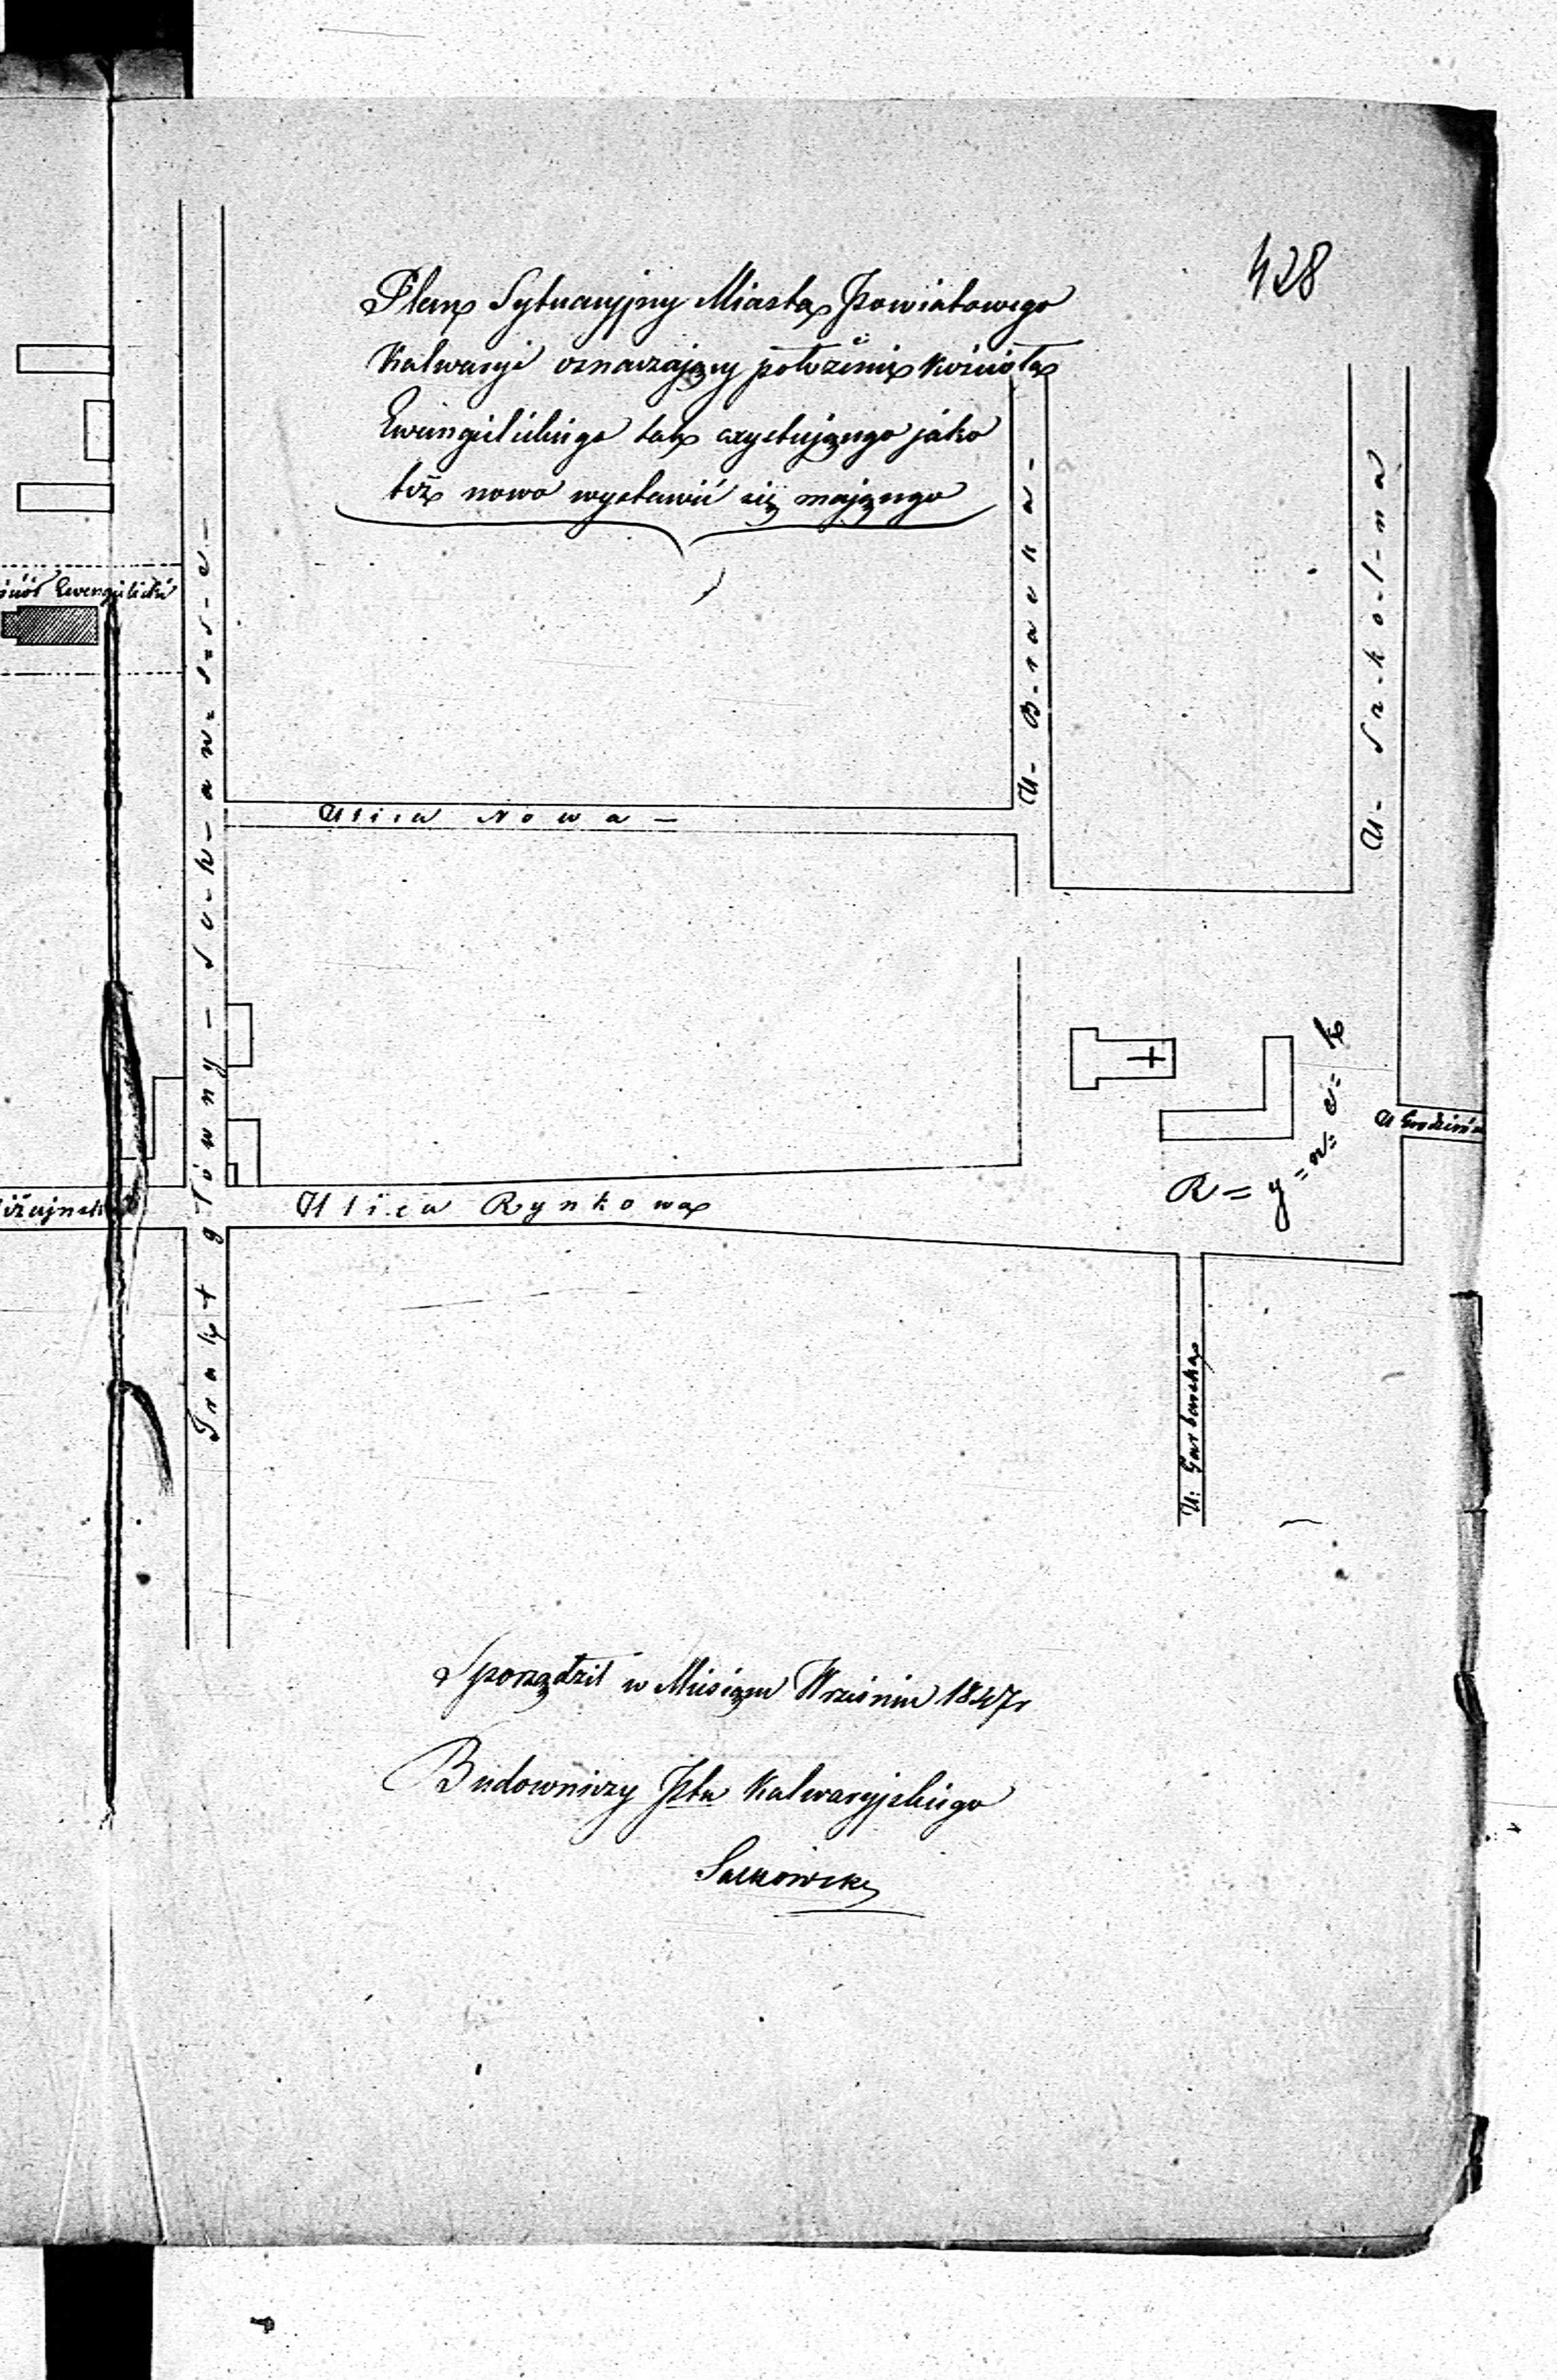 428
Plan Sytuacyjny Miasta Powiatowego
Kalwaryi oznaczający położenie kościoła
Ewangielickiego tak exystującego jako
też nowo wystawić się mającego
Ewangielicki
Trakt główny - Suwalski
Ulica Nowa -
U - Bracka -
U - Szkolna
Rynek
U Grodzieńs
Ulica Rynkowa
U: Garbarska
Sporządził w Miesiącu Wrześniu 1847r
Budowniczy Ptu Kalwaryjskiego